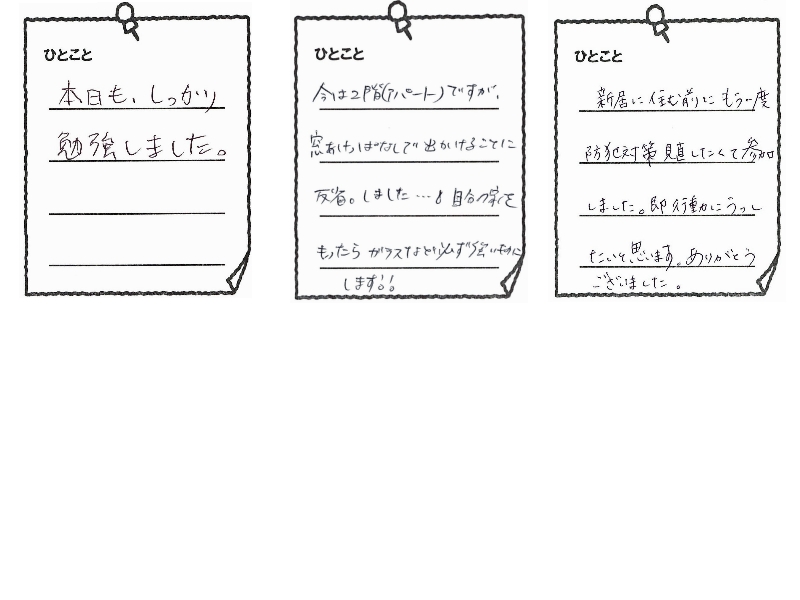 ひとこと
本日も、しっかり
勉強しました。
ひとこと
今は2階(アパート)ですが、
窓あけっぱなしで出かけることに
反省。しました…。自分の家を
もったら ガラスなど必ず強いものに
します!!
ひとこと
新居に住む前にもう一度
防犯対策見直したくて参加
しました。即行動にうつし
たいと思います。ありがとう
ございました。